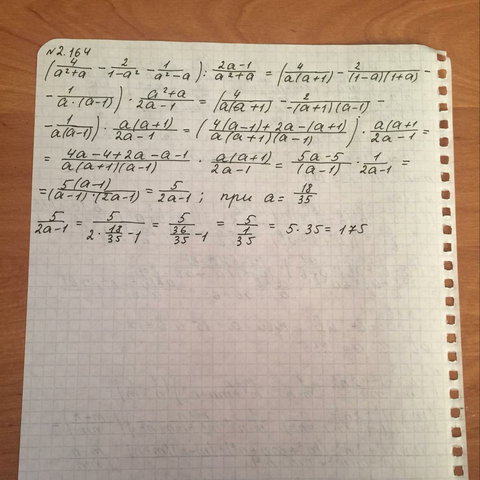 №2.164
(4/(a²+a) - 2/(1-a²) - 1/(a²-a)) : (2a-1)/(a²+a) = (4/(a(a+1)) - 2/((1-a)(1+a)) -
- 1/(a·(a-1))) · (a²+a)/(2a-1) = (4/(a(a+1)) - 2/(-(a+1)(a-1)) -
- 1/(a(a-1))) · a(a+1)/(2a-1) = ((4(a-1)+2a-(a+1))/(a(a+1)(a-1))) · a(a+1/(2a-1) =
= (4a-4+2a-a-1)/(a(a+1)(a-1)) · a(a+1)/(2a-1) = (5a-5)/(a-1) · 1/(2a-1) =
= 5(a-1)/((a-1)·(2a-1)) = 5/(2a-1) ; при a= 18/35
5/(2a-1) = 5/(2·18/35-1) = 5/(36/35-1) = 5/(1/35) = 5·35=175